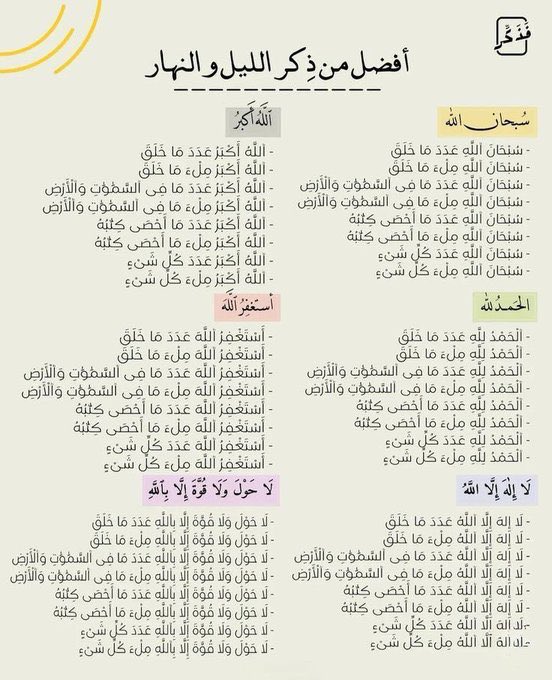 فَذَكِّر
أفضل من ذِكر الليل والنهار
سُبحان الله
- سُبْحَانَ اللَّهِ عَدَدَ مَا خَلَقَ
- سُبْحَانَ اللَّهِ مِلْءَ مَا خَلَقَ
- سُبْحَانَ اللَّهِ عَدَدَ مَا فِى السَّمَٰوَٰتِ وَالْأَرْضِ
- سُبْحَانَ اللَّهِ مِلْءَ مَا فِى السَّمَٰوَٰتِ وَالْأَرْضِ
- سُبْحَانَ اللَّهِ عَدَدَ مَا أَحْصَى كِتَٰبُهُ
- سُبْحَانَ اللَّهِ مِلْءَ مَا أَحْصَى كِتَٰبُهُ
- سُبْحَانَ اللَّهِ عَدَدَ كُلِّ شَىْءٍ
- سُبْحَانَ اللَّهِ مِلْءَ كُلِّ شَىْءٍ
اَللَّهُ أَكْبَرُ
- اَللَّهُ أَكْبَرُ عَدَدَ مَا خَلَقَ
- اَللَّهُ أَكْبَرُ مِلْءَ مَا خَلَقَ
- اَللَّهُ أَكْبَرُ عَدَدَ مَا فِى السَّمَٰوَٰتِ وَالْأَرْضِ
- اَللَّهُ أَكْبَرُ مِلْءَ مَا فِى السَّمَٰوَٰتِ وَالْأَرْضِ
- اَللَّهُ أَكْبَرُ عَدَدَ مَا أَحْصَى كِتَٰبُهُ
- اَللَّهُ أَكْبَرُ مِلْءَ مَا أَحْصَى كِتَٰبُهُ
- اَللَّهُ أَكْبَرُ عَدَدَ كُلِّ شَىْءٍ
- اَللَّهُ أَكْبَرُ مِلْءَ كُلِّ شَىْءٍ
الحَمدُ لله
- اَلْحَمْدُ لِلَّهِ عَدَدَ مَا خَلَقَ
- اَلْحَمْدُ لِلَّهِ مِلْءَ مَا خَلَقَ
- اَلْحَمْدُ لِلَّهِ عَدَدَ مَا فِى السَّمَٰوَٰتِ وَالْأَرْضِ
- اَلْحَمْدُ لِلَّهِ مِلْءَ مَا فِى السَّمَٰوَٰتِ وَالْأَرْضِ
- اَلْحَمْدُ لِلَّهِ عَدَدَ مَا أَحْصَى كِتَٰبُهُ
- اَلْحَمْدُ لِلَّهِ مِلْءَ مَا أَحْصَى كِتَٰبُهُ
- اَلْحَمْدُ لِلَّهِ عَدَدَ كُلِّ شَىْءٍ
- اَلْحَمْدُ لِلَّهِ مِلْءَ كُلِّ شَىْءٍ
أستَغفِرُ اللَّهَ
- أَسْتَغْفِرُ اللَّهَ عَدَدَ مَا خَلَقَ
- أَسْتَغْفِرُ اللَّهَ مِلْءَ مَا خَلَقَ
- أَسْتَغْفِرُ اللَّهَ عَدَدَ مَا فِى السَّمَٰوَٰتِ وَالْأَرْضِ
- أَسْتَغْفِرُ اللَّهَ مِلْءَ مَا فِى السَّمَٰوَٰتِ وَالْأَرْضِ
- أَسْتَغْفِرُ اللَّهَ عَدَدَ مَا أَحْصَى كِتَٰبُهُ
- أَسْتَغْفِرُ اللَّهَ مِلْءَ مَا أَحْصَى كِتَٰبُهُ
- أَسْتَغْفِرُ اللَّهَ عَدَدَ كُلِّ شَىْءٍ
- أَسْتَغْفِرُ اللَّهَ مِلْءَ كُلِّ شَىْءٍ
لَا إِلٰهَ إِلَّا اللَّهُ
- لَا إِلهَ إِلَّا اللَّهُ عَدَدَ مَا خَلَقَ
- لَا إِلهَ إِلَّا اللَّهُ مِلْءَ مَا خَلَقَ
- لَا إِلهَ إِلَّا اللَّهُ عَدَدَ مَا فِى السَّمَٰوَٰتِ وَالْأَرْضِ
- لَا إِلهَ إِلَّا اللَّهُ مِلْءَ مَا فِى السَّمَٰوَٰتِ وَالْأَرْضِ
- لَا إِلهَ إِلَّا اللَّهُ عَدَدَ مَا أَحْصَى كِتَٰبُهُ
- لَا إِلهَ إِلَّا اللَّهُ مِلْءَ مَا أَحْصَى كِتَٰبُهُ
- لَا إِلهَ إِلَّا اللَّهُ عَدَدَ كُلِّ شَىْءٍ
- لَا إِلهَ إِلَّا اللَّهُ مِلْءَ كُلِّ شَىْءٍ
لَا حَوْلَ وَلَا قُوَّةَ إِلَّا بِاللَّهِ
- لَا حَوْلَ وَلَا قُوَّةَ إِلَّا بِاللَّهِ عَدَدَ مَا خَلَقَ
- لَا حَوْلَ وَلَا قُوَّةَ إِلَّا بِاللَّهِ مِلْءَ مَا خَلَقَ
- لَا حَوْلَ وَلَا قُوَّةَ إِلَّا بِاللَّهِ عَدَدَ مَا فِى السَّمَٰوَٰتِ وَالْأَرْضِ
- لَا حَوْلَ وَلَا قُوَّةَ إِلَّا بِاللَّهِ مِلْءَ مَا فِى السَّمَٰوَٰتِ وَالْأَرْضِ
- لَا حَوْلَ وَلَا قُوَّةَ إِلَّا بِاللَّهِ عَدَدَ مَا أَحْصَى كِتَٰبُهُ
- لَا حَوْلَ وَلَا قُوَّةَ إِلَّا بِاللَّهِ مِلْءَ مَا أَحْصَى كِتَٰبُهُ
- لَا حَوْلَ وَلَا قُوَّةَ إِلَّا بِاللَّهِ عَدَدَ كُلِّ شَىْءٍ
- لَا حَوْلَ وَلَا قُوَّةَ إِلَّا بِاللَّهِ مِلْءَ كُلِّ شَىْءٍ